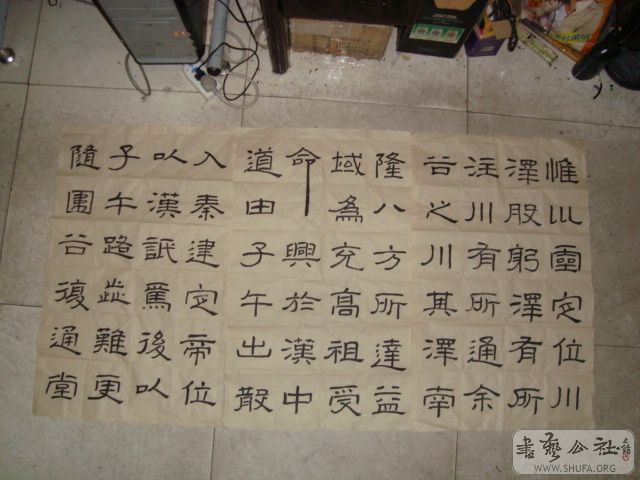 惟巛靈定位川
澤股躬澤有所
注川有所通余
谷之川其澤南
隆八方所達益
域為充高祖受
命興於漢中
道由子午出散
入秦建定帝位
以漢詆焉後以
子午路歰難更
隨圍谷復通堂
書藝公社
WWW.SHUFA.ORG